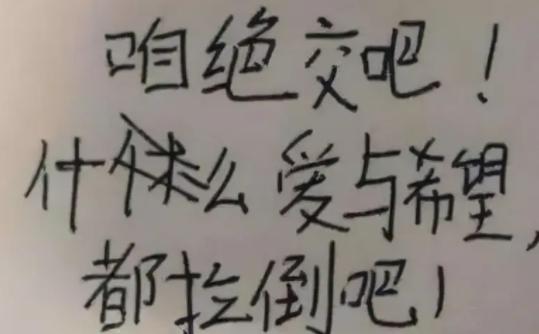 咱绝交吧！
什么爱与希望，
都拉倒吧！